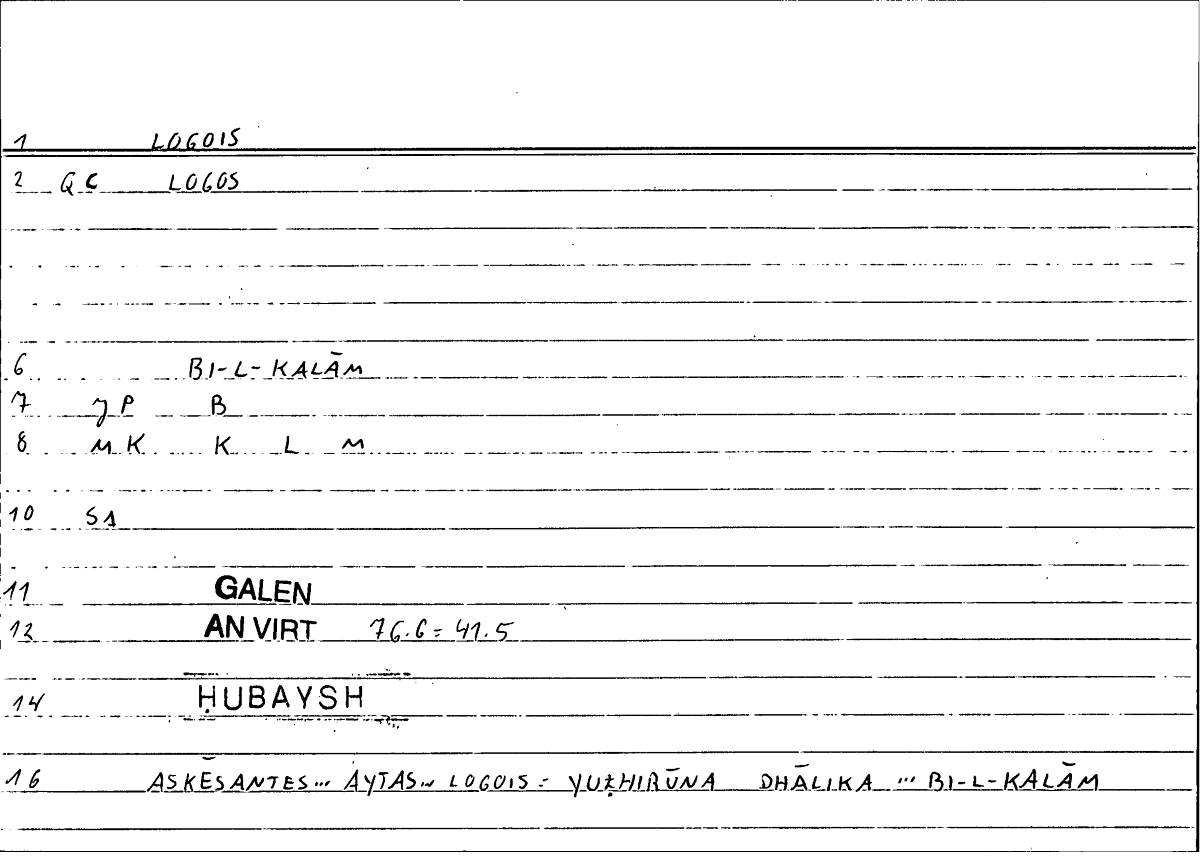 1 LOGOIS
2 QC LOGOS
6 BI-L-KALĀM
7 JP B
8 MK K L M
10 S1
11 GALEN
12 AN VIRT 76.6 = 41.5
14 ḤUBAYSH
16 ASKĒSANTES... AYTAS... LOGOIS = YUẒHIRŪNA DHĀLIKA ... BI-L-KALĀM